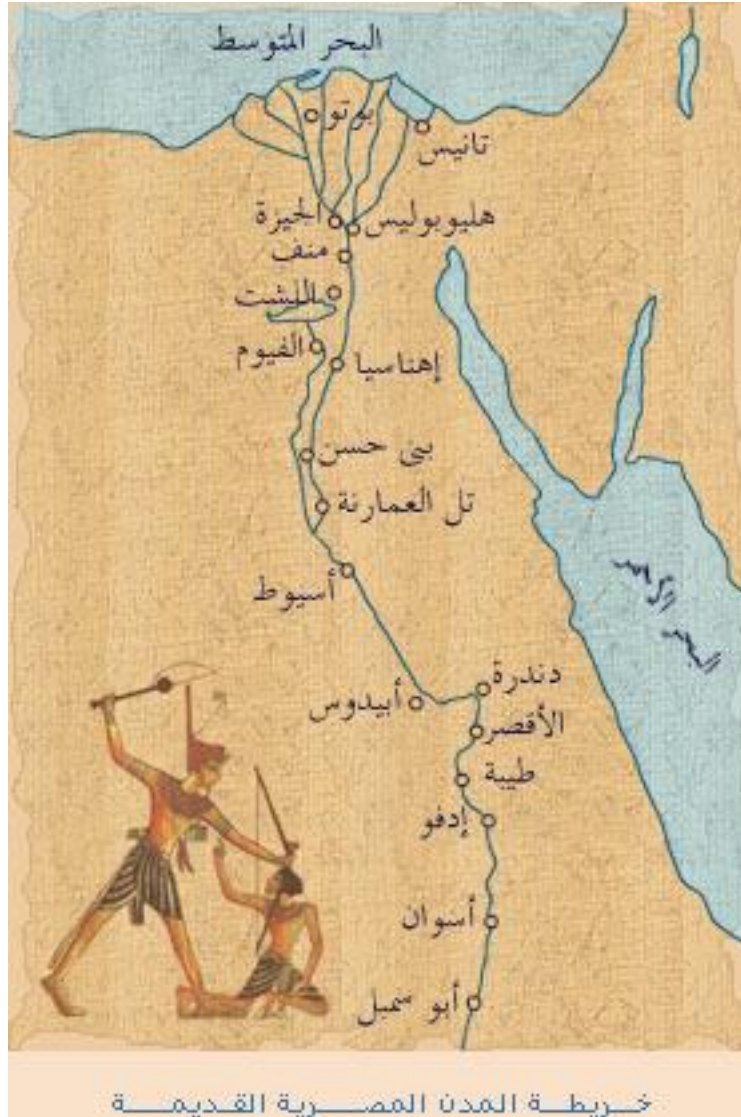 البحر المتوسط
بوتو
تانيس
الجيزة
هليوبوليس
منف
اللشت
الفيوم
إهناسيا
بنى حسن
تل العمارنة
أسيوط
البحر الأحمر
دندرة
أبيدوس
الأقصر
طيبة
إدفو
أسوان
أبو سمبل
خريطة المدن المصرية القديمة